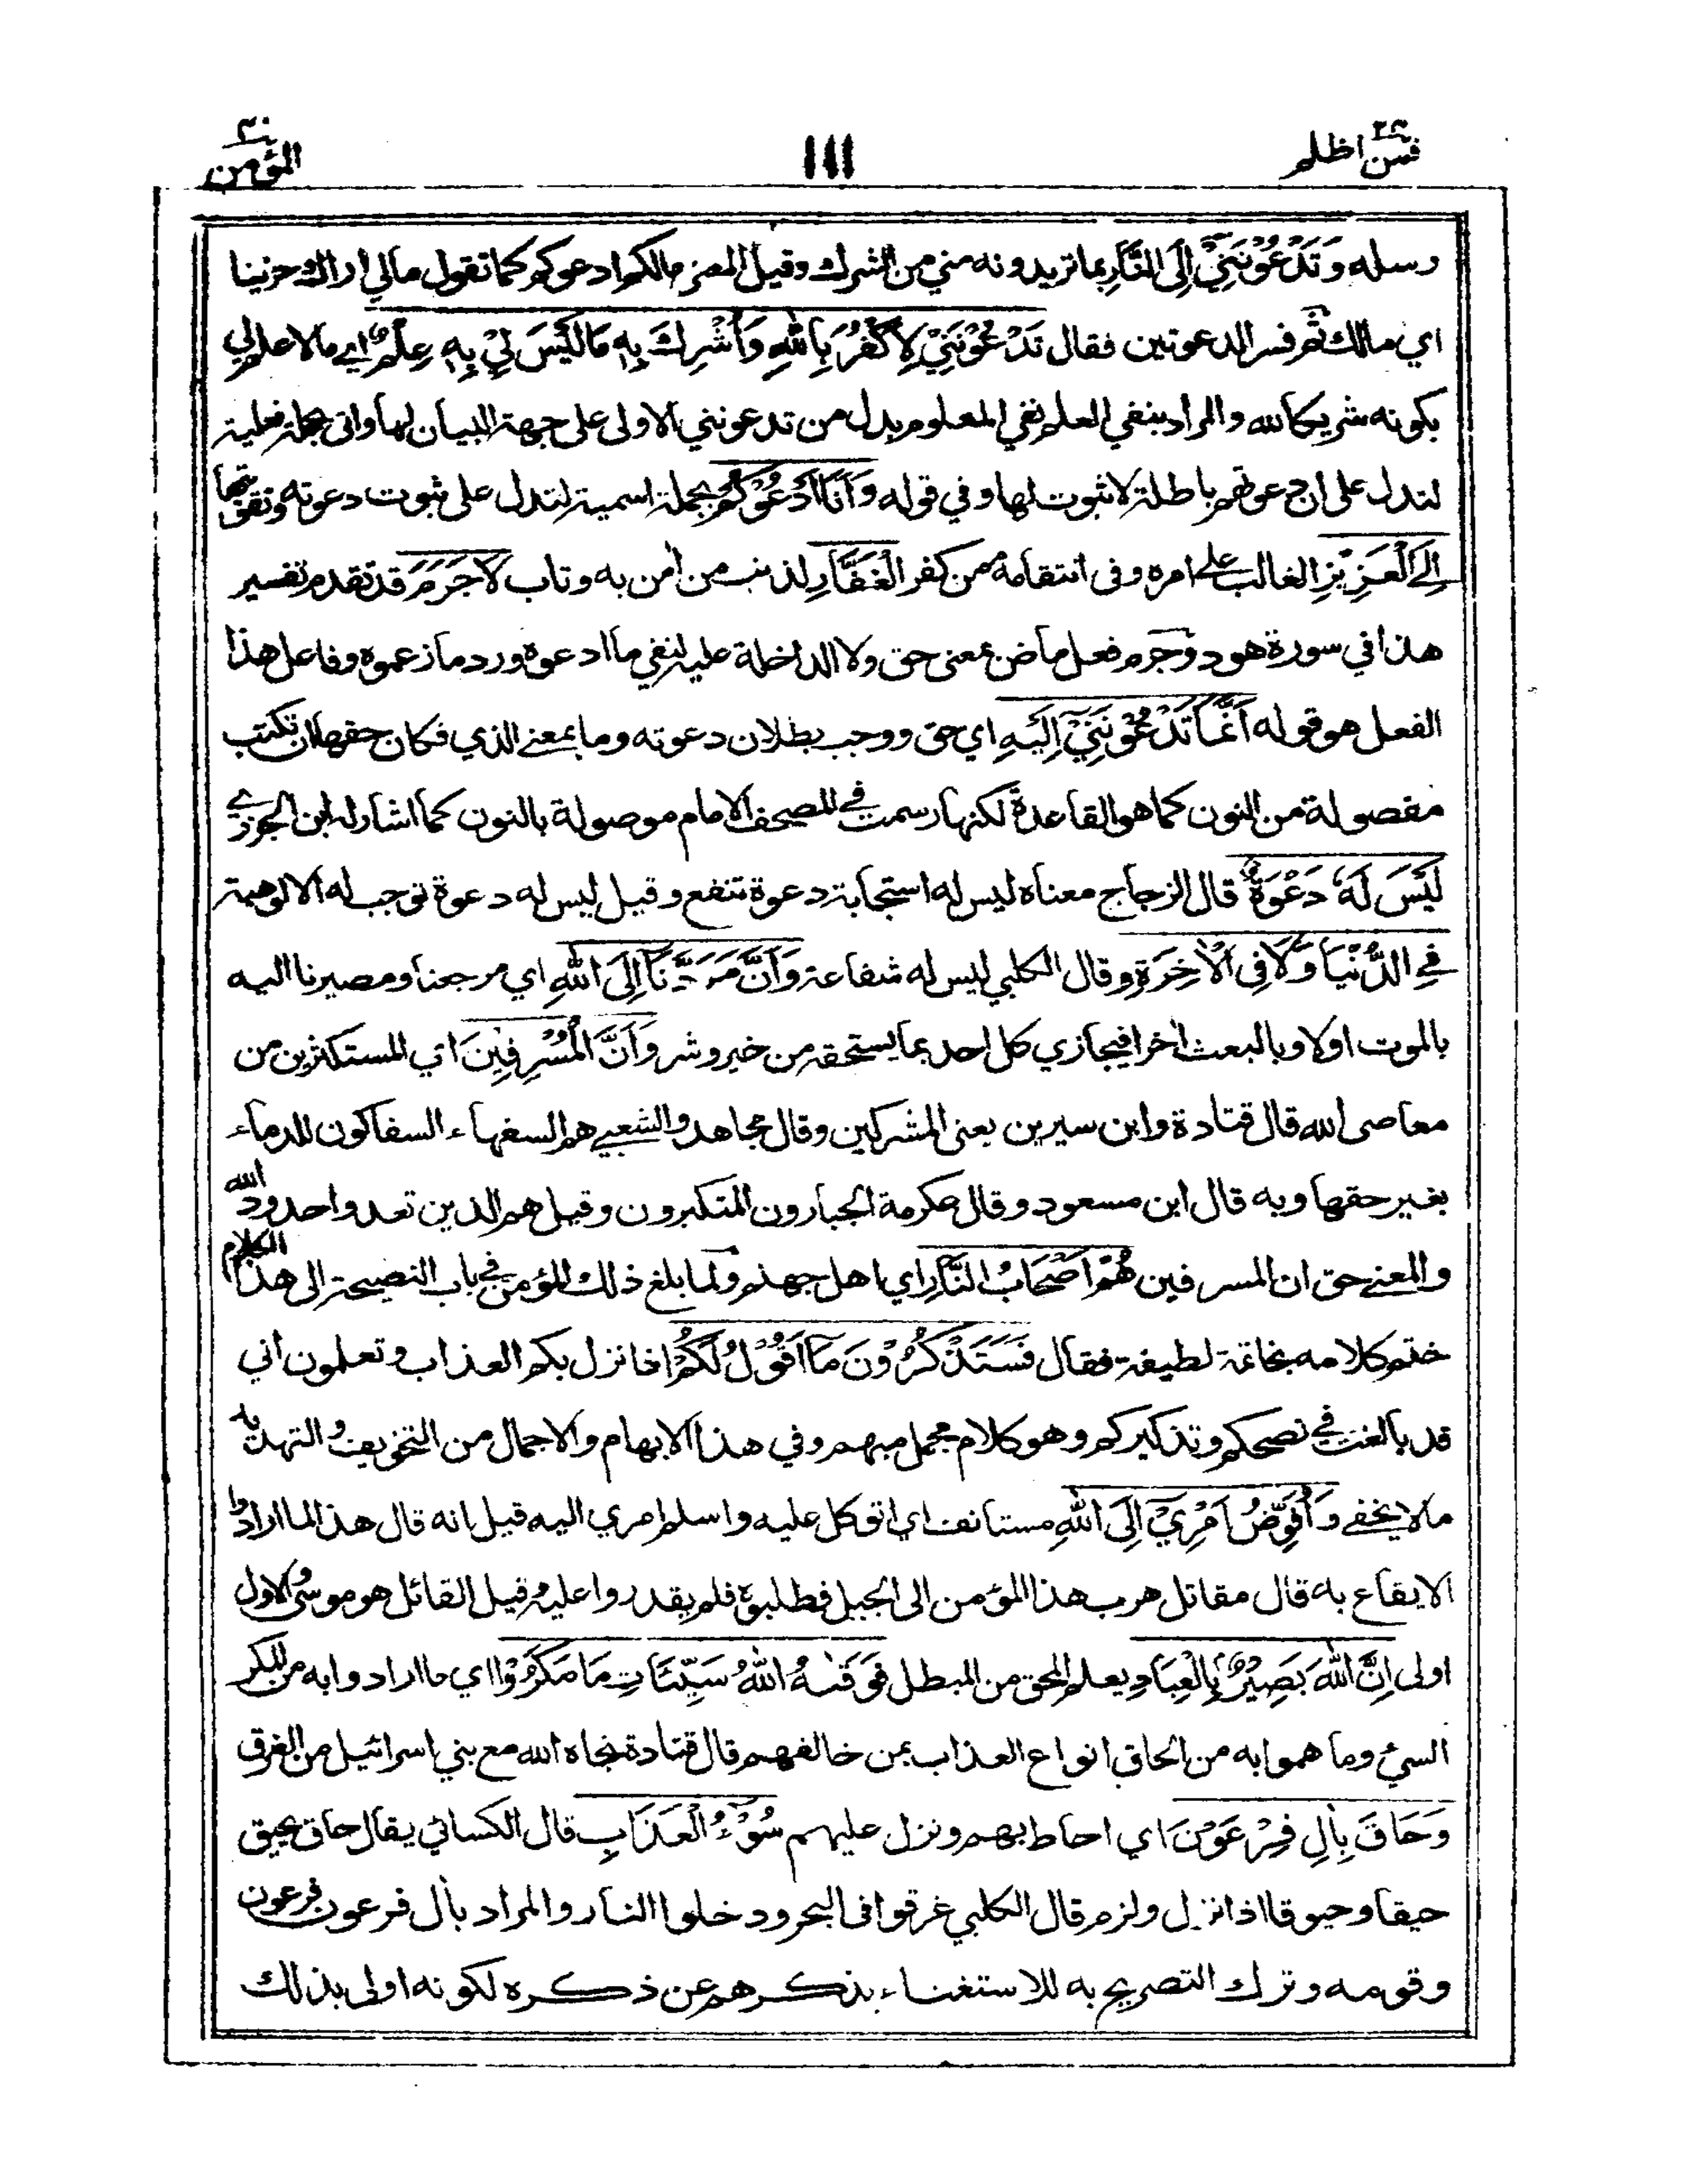 فمن اظلم ٢٤
١١١
المؤمن ٤٠
رسله وَتَدْعُوْنَنِيْٓ اِلَى النَّارِ بما تريدونه مني من الشرك وقيل المعنى مالكم ادعوكم كما تقول مالي اراك حزينا
اي مالك ثم فسر الدعوتين فقال تَدْعُوْنَنِيْ لِاَكْفُرَ بِاللّٰهِ وَاُشْرِكَ بِهٖ مَا لَيْسَ لِيْ بِهٖ عِلْمٌ اي مالا علم لي
بكونه شريكا لله والمراد بنفي العلم نفي المعلوم بدل من تدعونني الاولى على جهة البيان لها واتى بجملة فعلية
لتدل على ان دعوتهم باطلة لا ثبوت لها وفي قوله وَاَنَا اَدْعُوْكُمْ بجملة اسمية لتدل على ثبوت دعوته وتقويتها
اِلَى الْعَزِيْزِ الغالب على امره وفى انتقامه ممن كفر الْغَفَّارِ لذنب من اٰمن به وتاب لَا جَرَمَ قد تقدم تفسير
هذا في سورة هود وجرم فعل ماض بمعنى حق ولا الداخلة عليه لنفي ما ادعوه ورد ما زعموه وفاعل هذا
الفعل هو قوله اَنَّمَا تَدْعُوْنَنِيْٓ اِلَيْهِ اي حق ووجب بطلان دعوته وما بمعنى الذي فكان حقها ان تكتب
مفصولة من النون كما هو القاعدة لكنها رسمت في المصحف الامام موصولة بالنون كما اشار له ابن الجزري
لَيْسَ لَهٗ دَعْوَةٌ قال الزجاج معناه ليس له استجابة دعوة تنفع وقيل ليس له دعوة توجب له الالوهية
فِي الدُّنْيَا وَلَا فِى الْاٰخِرَةِ وقال الكلبي ليس له شفاعة وَاَنَّ مَرَدَّنَا اِلَى اللّٰهِ اي مرجعنا ومصيرنا اليه
بالموت اولا وبالبعث اٰخرا فيجازي كل احد بما يستحقه من خير وشر وَاَنَّ الْمُسْرِفِيْنَ اي المستكثرين من
معاصى الله قال قتادة وابن سيرين يعنى المشركين وقال مجاهد والشعبي هم السفهاء السفاكون للدماء
بغير حقها وبه قال ابن مسعود وقال عكرمة الجبارون المتكبرون وقيل هم الذين تعدوا حدود الله
والمعنى حق ان المسرفين هُمْ اَصْحَابُ النَّارِ اي اهل جهنم ولما بلغ ذلك المؤمن في باب النصيحة الى هذا الكلام
ختم كلامه بخاتمة لطيفة فقال فَسَتَذْكُرُوْنَ مَا اَقُوْلُ لَكُمْ اذا نزل بكم العذاب وتعلمون اني
قد بالغت في نصحكم وتذكيركم وهو كلام مجمل مبهم وفي هذا الابهام والاجمال من التخويف والتهديد
مالا يخفى وَاُفَوِّضُ اَمْرِيْٓ اِلَى اللّٰهِ مستانف اي اتوكل عليه واسلم امري اليه قيل انه قال هذا لما ارادوا
الايقاع به قال مقاتل هرب هذا المؤمن الى الجبل فطلبوه فلم يقدروا عليه وقيل القائل هو موسى والاول
اولى اِنَّ اللّٰهَ بَصِيْرٌ بِالْعِبَادِ يعلم المحق من المبطل فَوَقٰىهُ اللّٰهُ سَيِّئَاتِ مَا مَكَرُوْا اي ما ارادوا به من المكر
السيئ وما هموا به من الحاق انواع العذاب بمن خالفهم قال قتادة نجاه الله مع بني اسرائيل من الغرق
وَحَاقَ بِاٰلِ فِرْعَوْنَ اي احاط بهم ونزل عليهم سُوْٓءُ الْعَذَابِ قال الكسائي يقال حاق يحيق
حيقا وحيوقا اذا نزل ولزم قال الكلبي غرقوا فى البحر ودخلوا النار والمراد باٰل فرعون فرعون
وقومه وترك التصريح به للاستغناء بذكرهم عن ذكره لكونه اولى بذلك